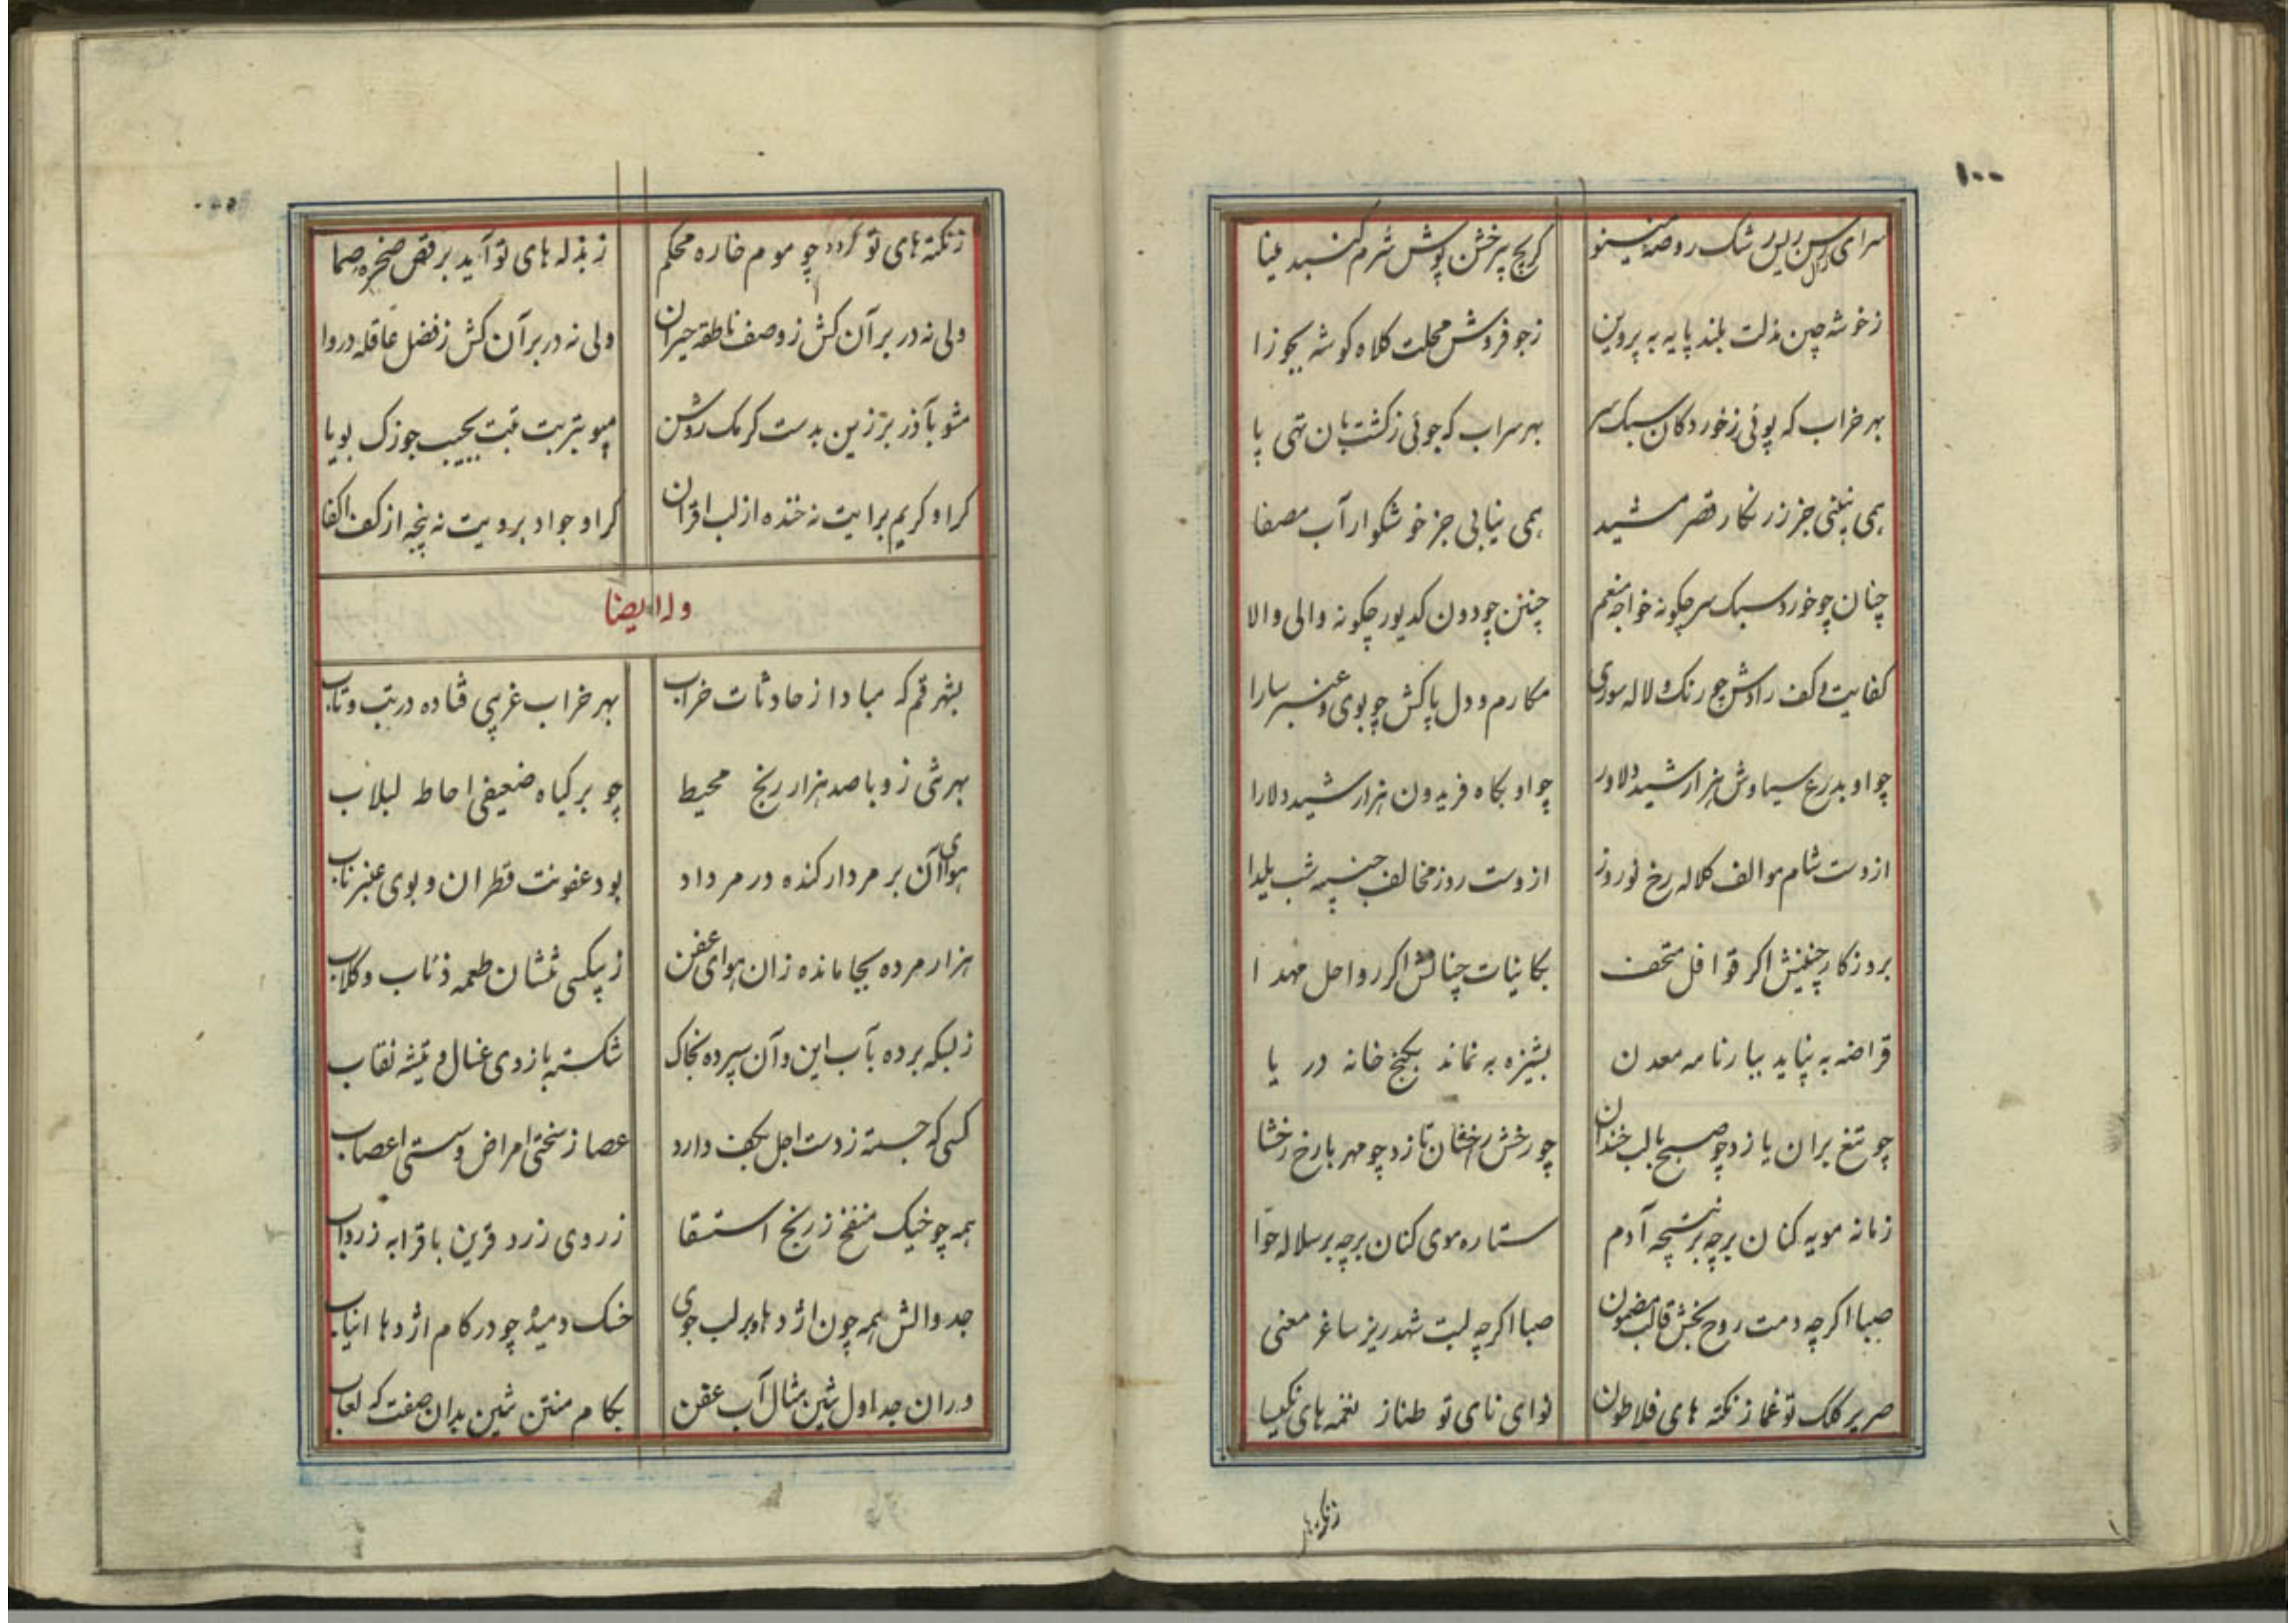 ۱۰۰
سرای رشک روضهٔ مینو کریچ پرخش پوش شرم گنبد مینا
زخوشه چین مذلت بلند پایه به پروین زجو فروش محلت کلاه کوشه بجوزا
بهر خراب که پوئی زخوردکان سبک سر بهر سراب که جوئی زکشت بان تهی پا
همی نه بینی جز زرنکار قصر مشید همی نیابی جز خوشکوار آب مصفا
چنان چو خورد سبک سر چکونه خواجه منعم چنین چو دون کدیور چکونه والی والا
کفایت و کف رادش چو رنک و لاله سوری مکارم و دل پاکش چو بوی و عنبر سارا
چو او بدرع سیاوش هزار شید دلاور چو او بکاه فریدون هزار شید دلارا
ازوست شام موالف کلاله رخ نوروز ازوست روز مخالف شب یلدا
بروزکار چنینش اکر قوافل متحف بکاینات چنانش اکر رواحل مهدا
قراضه به نپاید ببارنامه معدن بشیزه به نماند بکنج خانه دریا
چو تیغ بران یازد چو صبح بالب خندان چو رخش رخشان تازد چو مهر بارخ رخشا
زمانه مویه کنان برچه بر نتیجه آدم ستاره موی کنان برچه بر سلاله حوّا
صبا اکرچه دمت روح بخش قالب مضمون صبا اکرچه لبت شهدریز ساغر معنی
صریر کلک تو غماز نکته های فلاطون نوای نای تو طناز نغمه های نکیسا
زنکته های
زنکته های تو کردد چو موم خاره محکم زبذله های تو آید برقص صخره صما
ولی نه در بر آن کش زوصف ناطقه حیران ولی نه در بر آن کش زفضل عاقله دروا
مشو بآذر برزین بدست کرمک روشن مپو بتربت تبت بجیب جوزک بویا
کراو کریم برایت نه خنده از لب اقران کراو جواد برویت نه پنجه از کف اکفا
وله ایضا
بشهر قم که مبادا زحادثات خراب بهر خراب غریبی فتاده در تب و تاب
بهر تنی زوبا صد هزار رنج محیط چو بر کیاه ضعیفی احاطه لبلاب
هوای آن بر مردار کنده در مرداد بود عفونت قطران و بوی عنبر ناب
هزار مرده بجا مانده زان هوای عفن زبیکسی تنشان طعمه ذئاب و کلاب
زبسکه برده بآب این و آن سپرده بخاک شکسته بازوی غسال و تیشه نقاب
کسی که جسته زدست اجل بکف دارد عصا زسختی امراض و سستی اعصاب
همه چو خیک منفخ زرنج استسقا زروی زرد قرین با قرابه زرداب
جدوالش همه چون اژدها و بر لب جوی خسک دمیده چو در کام اژدها انیاب
در ان جداول شین مثال آب عفن بکام منتن شین بدان صفت که لعاب